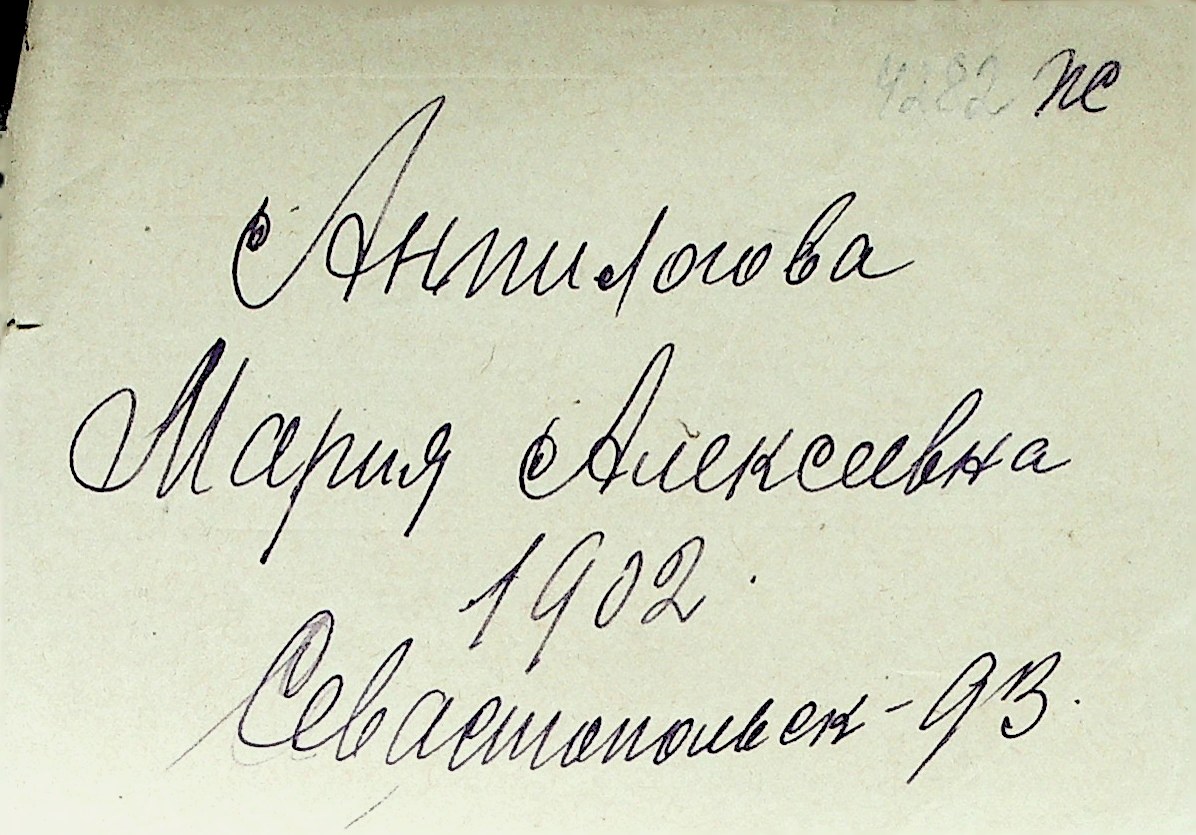 4282 ПС
Анпилогова
Мария Алексеевна
1902.
Севастопольск-93.